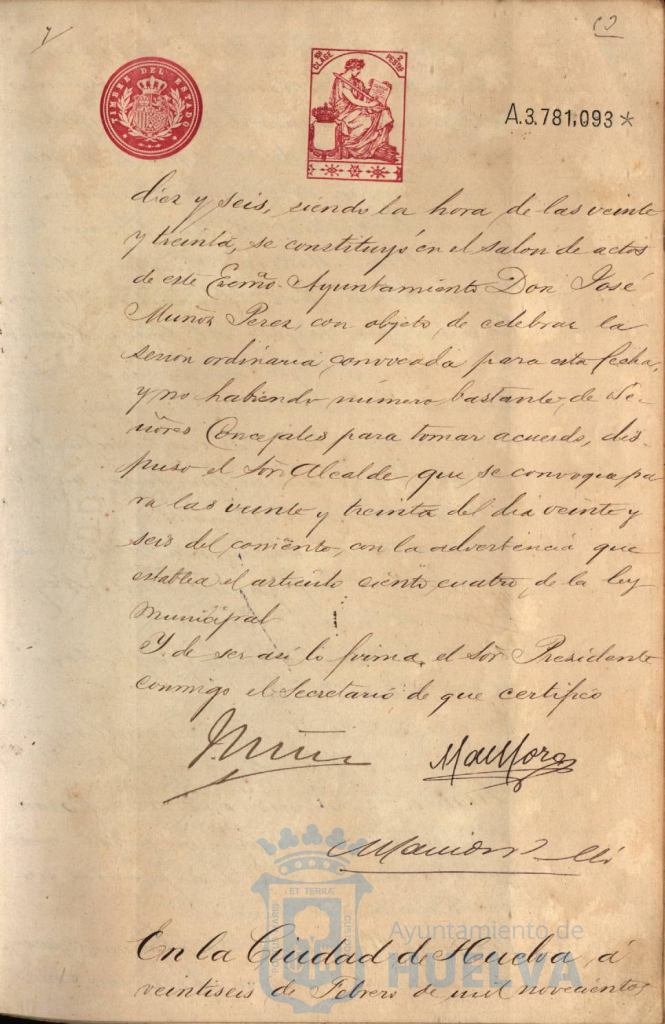 TIMBRE DEL ESTADO
CLASE
2 PESETAS
A.3.781,093*
diez y seis, siendo la hora de las veinte
y treinta, se constituyó en el salon de actos
de este Excmo. Ayuntamiento Don José
Muñoz Perez, con objeto de celebrar la
sesion ordinaria convocada para esta fecha,
y no habiendo número bastante de Se-
ñores Concejales para tomar acuerdo, dis-
puso el Sor. Alcalde que se convoque pa-
ra las veinte y treinta del dia veinte y
seis del corriente, con la advertencia que
establece el artículo ciento cuatro de la ley
Municipal
Y de ser así lo firma el Sor. Presidente
conmigo el Secretario de que certifico
J. Muñoz
ET TERRA
En la Ciudad de Huelva á
veintiseis de Febrero de mil novecientos
Ayuntamiento de
HUELVA